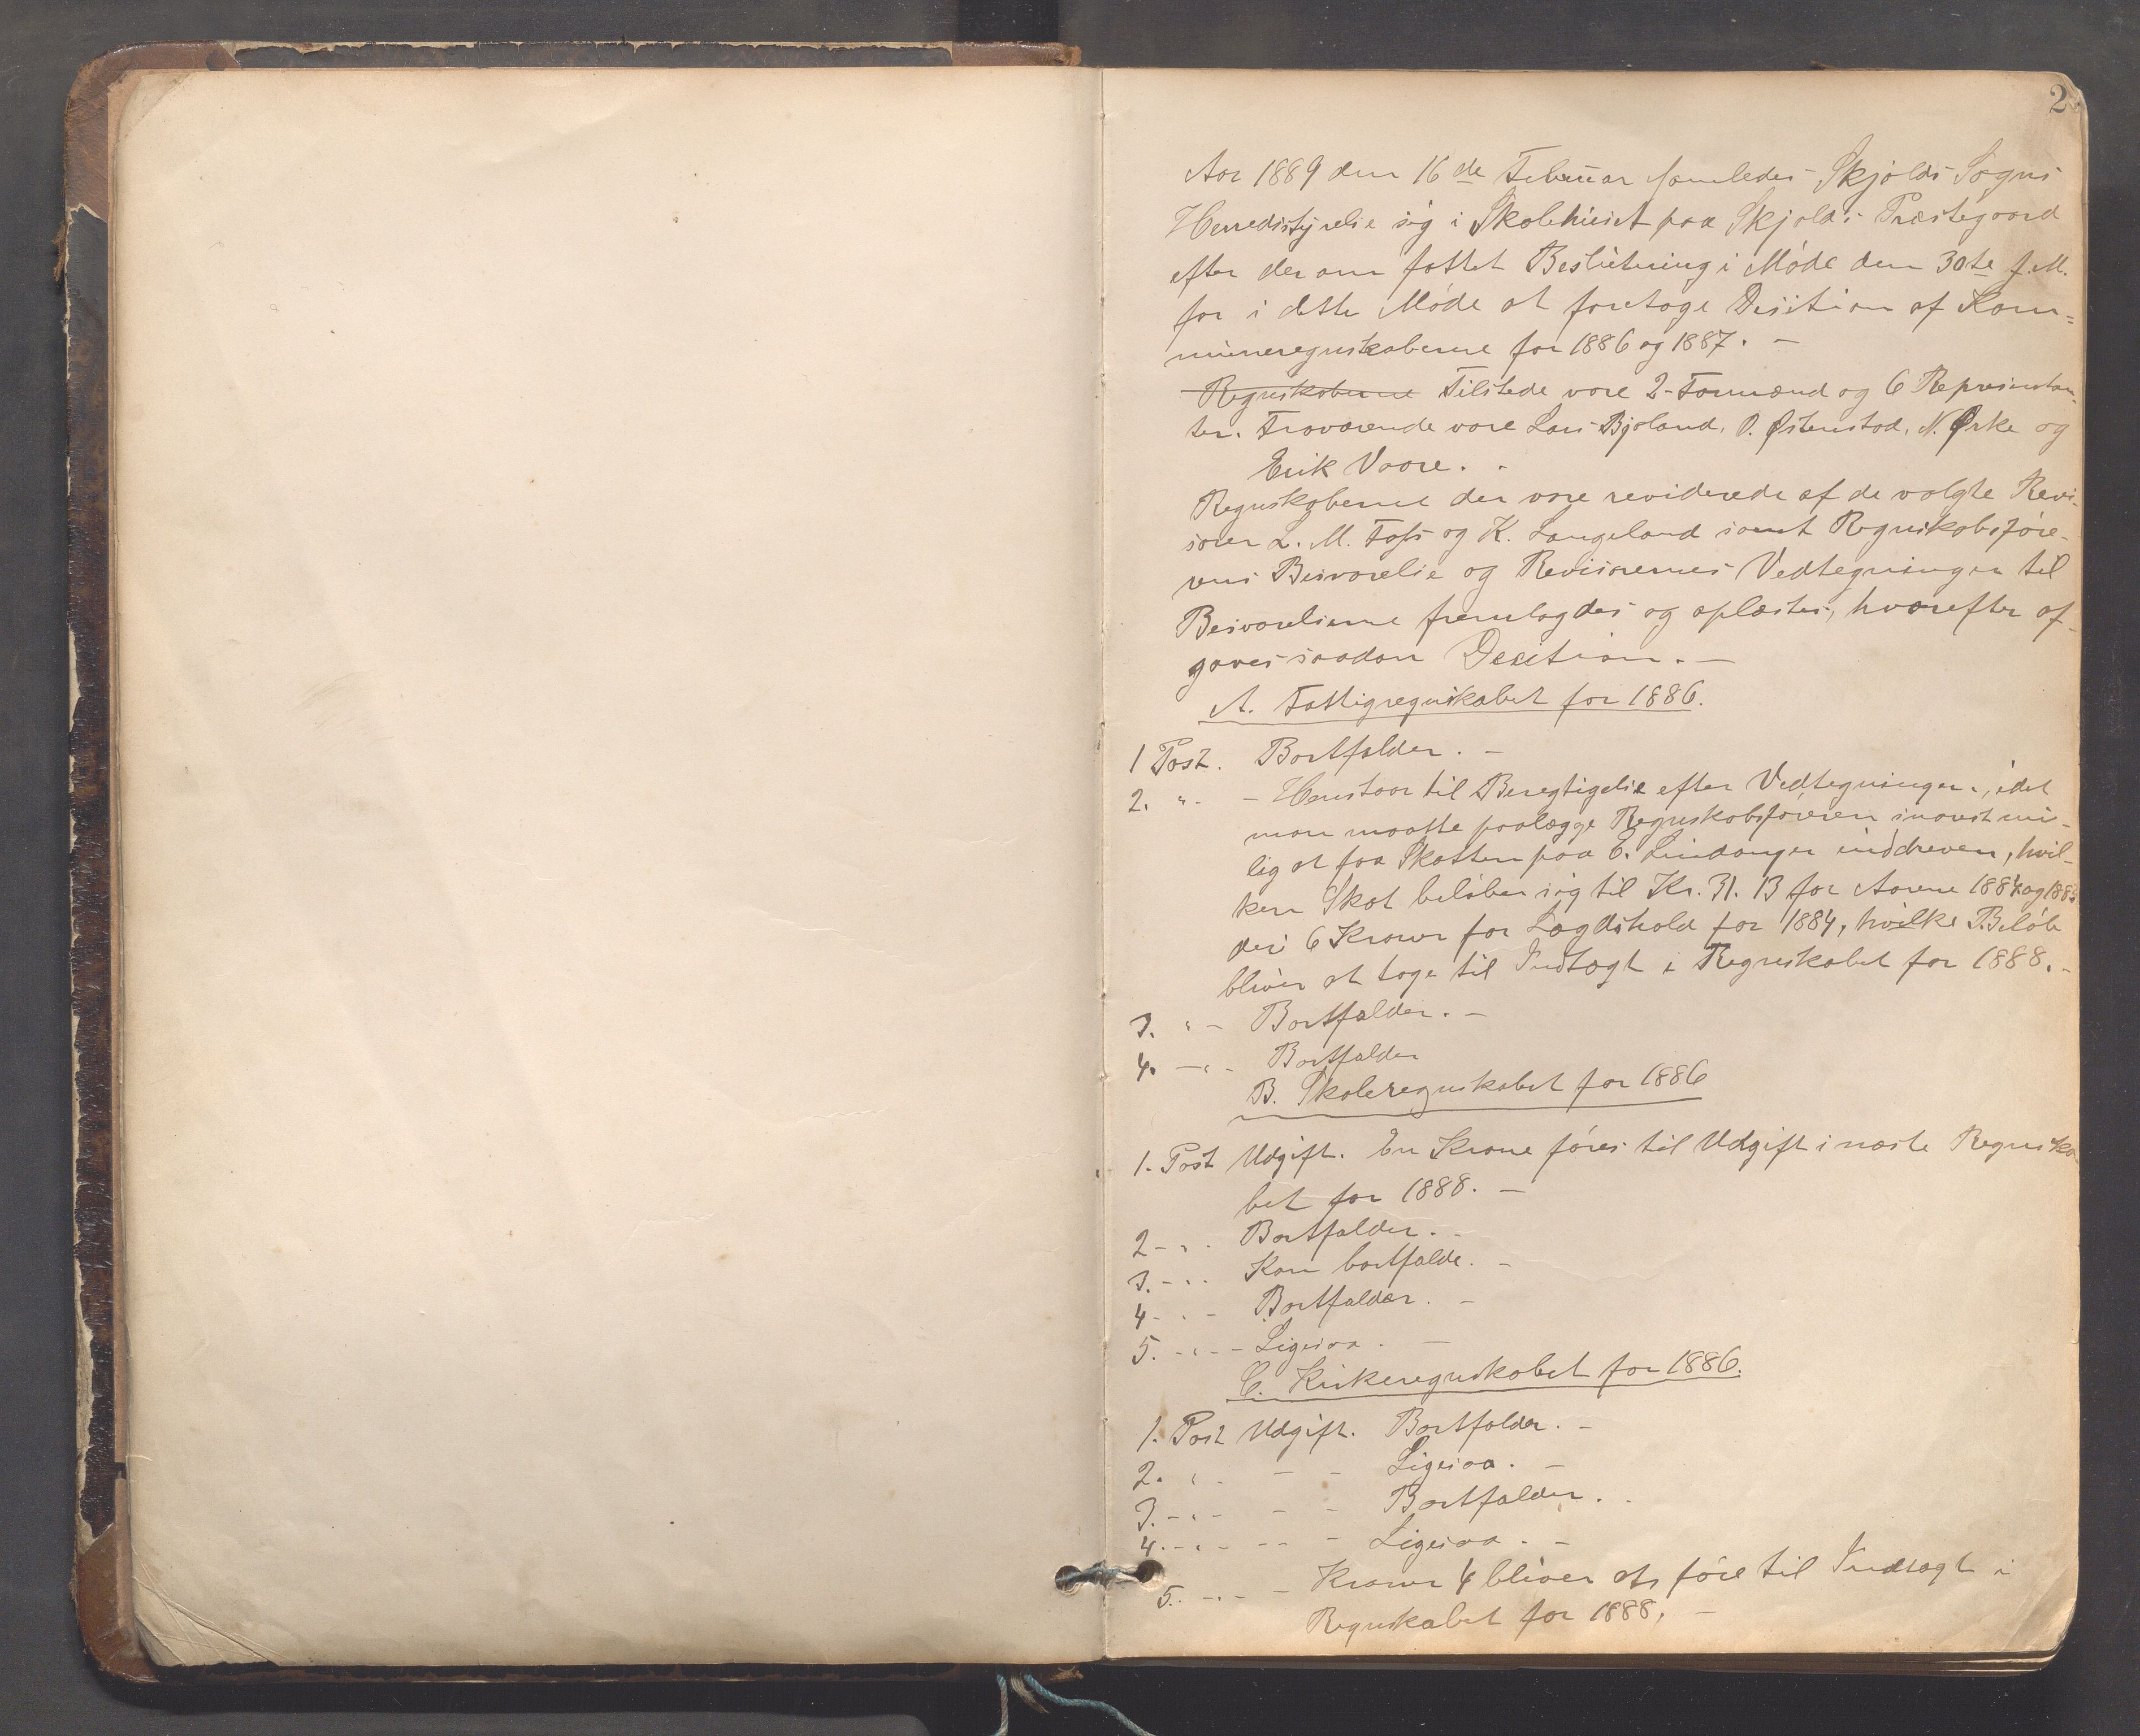 2
Aar 1889 den 16de Februar samledes Skjolds Sogns
Herredsstyrelse sig i Skolehuset paa Skjolds Præstegaard
efter derom fattet Beslutning i Møde den 30te f. M.
for i dette Møde at foretage Desition af Kom=
muneregnskaberne for 1886 og 1887. —
Regnskaberne Tilstede vare 2 Formænd og 6 Represintan-
ter. Fraværende vare Lars Bjoland, O. Østenstad, N. Ørke og
Erik Vaare.
Regnskaberne der vare reviderede af de valgte Revi-
sorer L. M. Foss og K. Langeland samt Regnskabsføre-
rens Besvarelse og Revisorernes Vedtegninger til
Besvarelserne fremlagdes og oplæstes, hvorefter af-
gaves saadan Desition. —
A. Fattigregnskabet for 1886.
1 Post. Bortfalder. —
2. " - — Henstaar til Beregtigelse efter Vedtegningen, idet
man maatte paalægge Regnskabsføreren snarest mu-
lig at faa Skatten paa E. Lindanger inddreven, hvil-
ken Skat beløber sig til Kr. 31. 13 for Aarene 1884 og 1885
des 6 Kroner for Lægdshold for 1884, hvilke Beløb
bliver at tage til Indtægt i Regnskabet for 1888. -
3. " - Bortfalder. —
4. — " - Bortfalder
B. Skoleregnskabet for 1886
1. Post Udgift. En Krone føres til Udgift i næste Regnska-
bet for 1888. —
2 - " - Bortfalder. -
3. - " - Kan bortfalde. -
4 - " - Bortfalder. —
5. - " - - Ligesaa. —
C. Kirkeregnskabet for 1886.
1. Post Udgift. Bortfalder. —
2. " - — - Ligesaa. —
3. - " - — - Bortfalder. -
4. - " - -- - Ligesaa. -
5. - " - - Kroner 4 bliver at føre til Indtægt i
Regnskabet for 1888. —